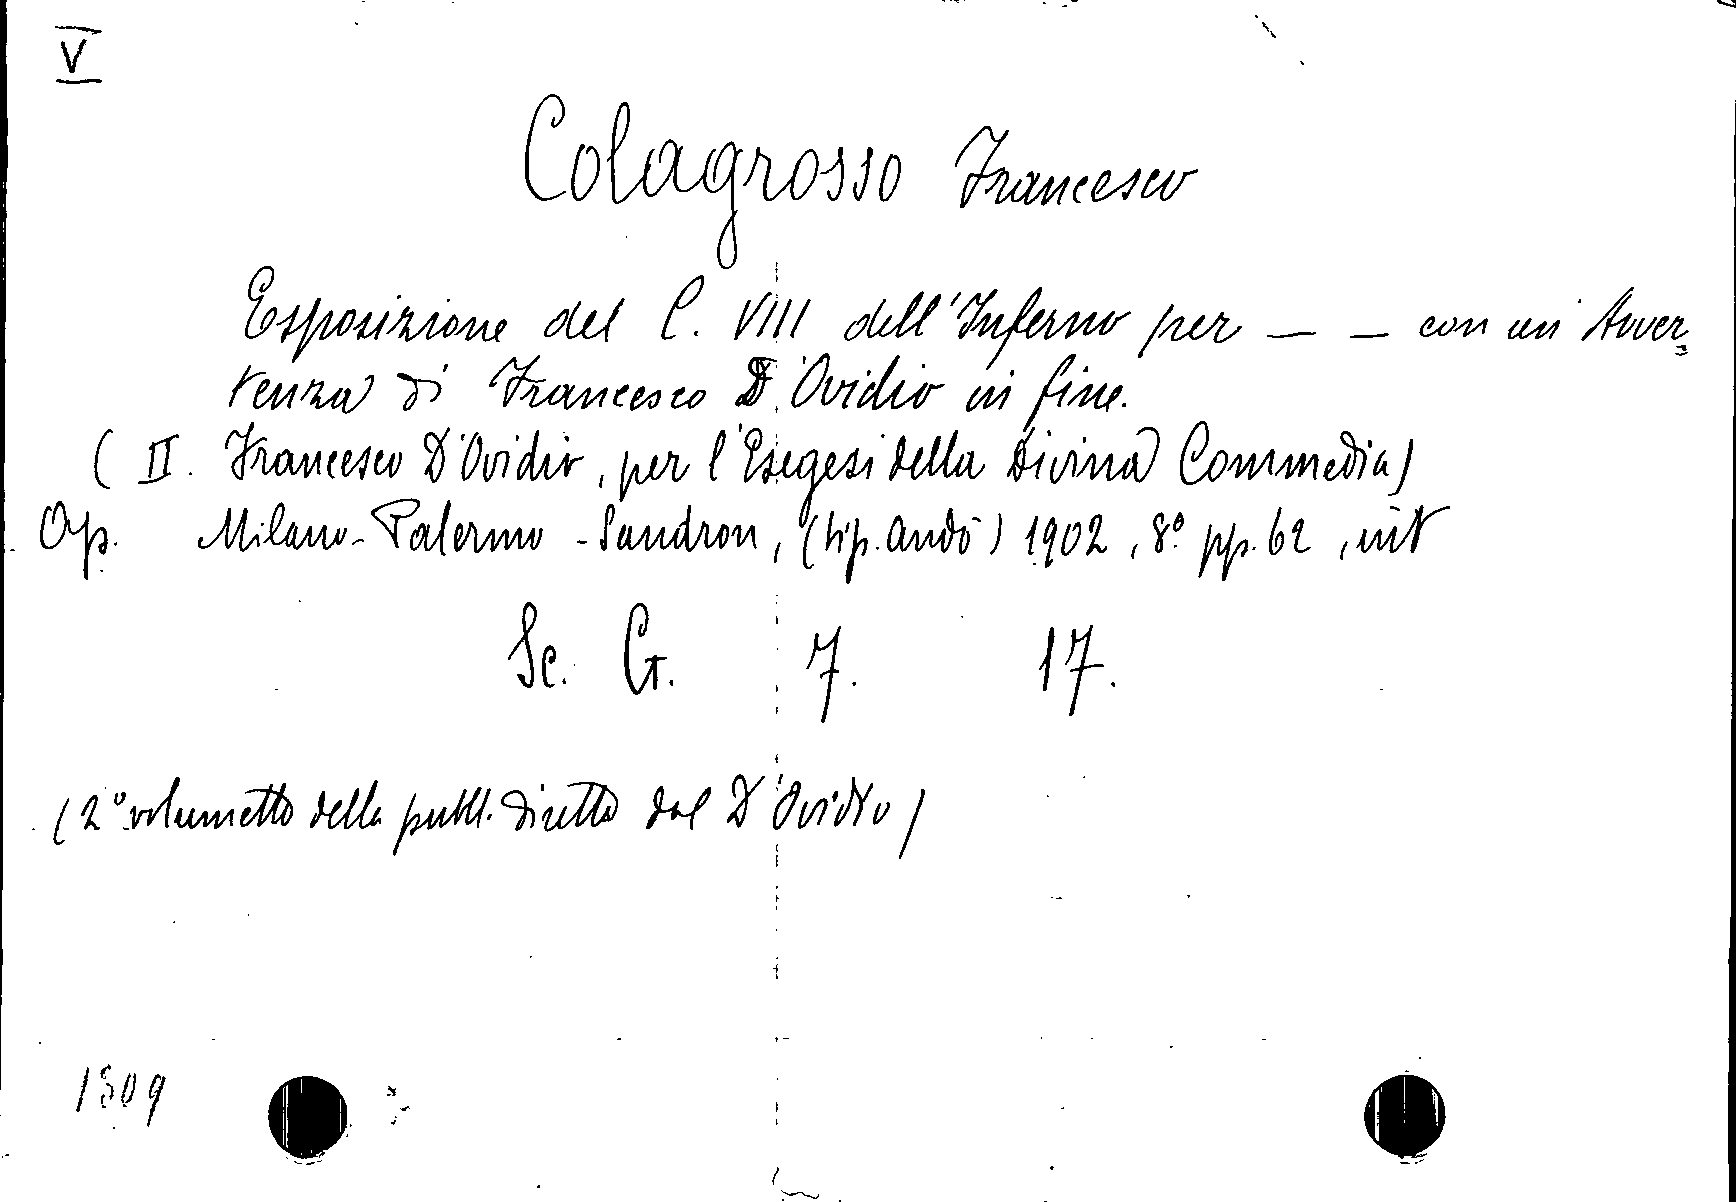 V
Colagrosso Francesco
Esposizione del C. VIII dell'Inferno per — — con un' Avver=
tenza di Francesco D'Ovidio in fine.
( II. Francesco D'Ovidio, per l'Esegesi della Divina Commedia)
Op. Milano-Palermo-Sandron, (tip. Andò) 1902, 8° pp. 62, int
Sc. G. 7. 17.
(2° volumetto della pubbl. diretta dal D'Ovidio)
1509